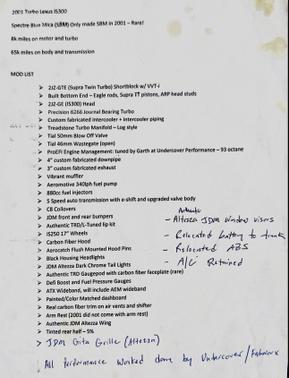 2001 Turbo Lexus IS300
Spectre Blue Mica (SBM) Only made SBM in 2001 – Rare!
8k miles on motor and turbo
65k miles on body and transmission
MOD LIST
➤ 2JZ-GTE (Supra Twin Turbo) Shortblock w/ VVT-i
➤ Built Bottom End – Eagle rods, Supra TT pistons, ARP head studs
➤ 2JZ-GE (IS300) Head
➤ Precision 6266 Journal Bearing Turbo
➤ Custom fabricated intercooler + intercooler piping
➤ Treadstone Turbo Manifold – Log style
➤ Tial 50mm Blow Off Valve
➤ Tial 46mm Wastegate (open)
➤ ProEFI Engine Management: tuned by Garth at Undercover Performance – 93 octane
➤ 4" custom fabricated downpipe
➤ 3" custom fabricated exhaust
➤ Vibrant muffler
➤ Aeromotive 340lph fuel pump
➤ 880cc fuel injectors
➤ 5 Speed auto transmission with e-shift and upgraded valve body
➤ C8 Coilovers
➤ JDM front and rear bumpers
➤ Authentic TRD/L-Tuned lip kit
➤ IS250 17" Wheels
➤ Carbon Fiber Hood
➤ Aerocatch Flush Mounted Hood Pins
➤ Black Housing Headlights
➤ JDM Altezza Dark Chrome Tail Lights
➤ Authentic TRD Gaugepod with carbon fiber faceplate (rare)
➤ Defi Boost and Fuel Pressure Gauges
➤ ATX Wideband, will include AEM wideband
➤ Painted/Color Matched dashboard
➤ Real carbon fiber trim on air vents and shifter
➤ Arm Rest (2001 did not come with arm rest)
➤ Authentic JDM Altezza Wing
➤ Tinted rear half – 5%
Authentic
- Altezza JDM window visors
- Relocated battery to trunk
- Relocated ABS
- A/C Retained
> JDM Gita Grille (Altezza)
All Performance Worked done by Undercover/